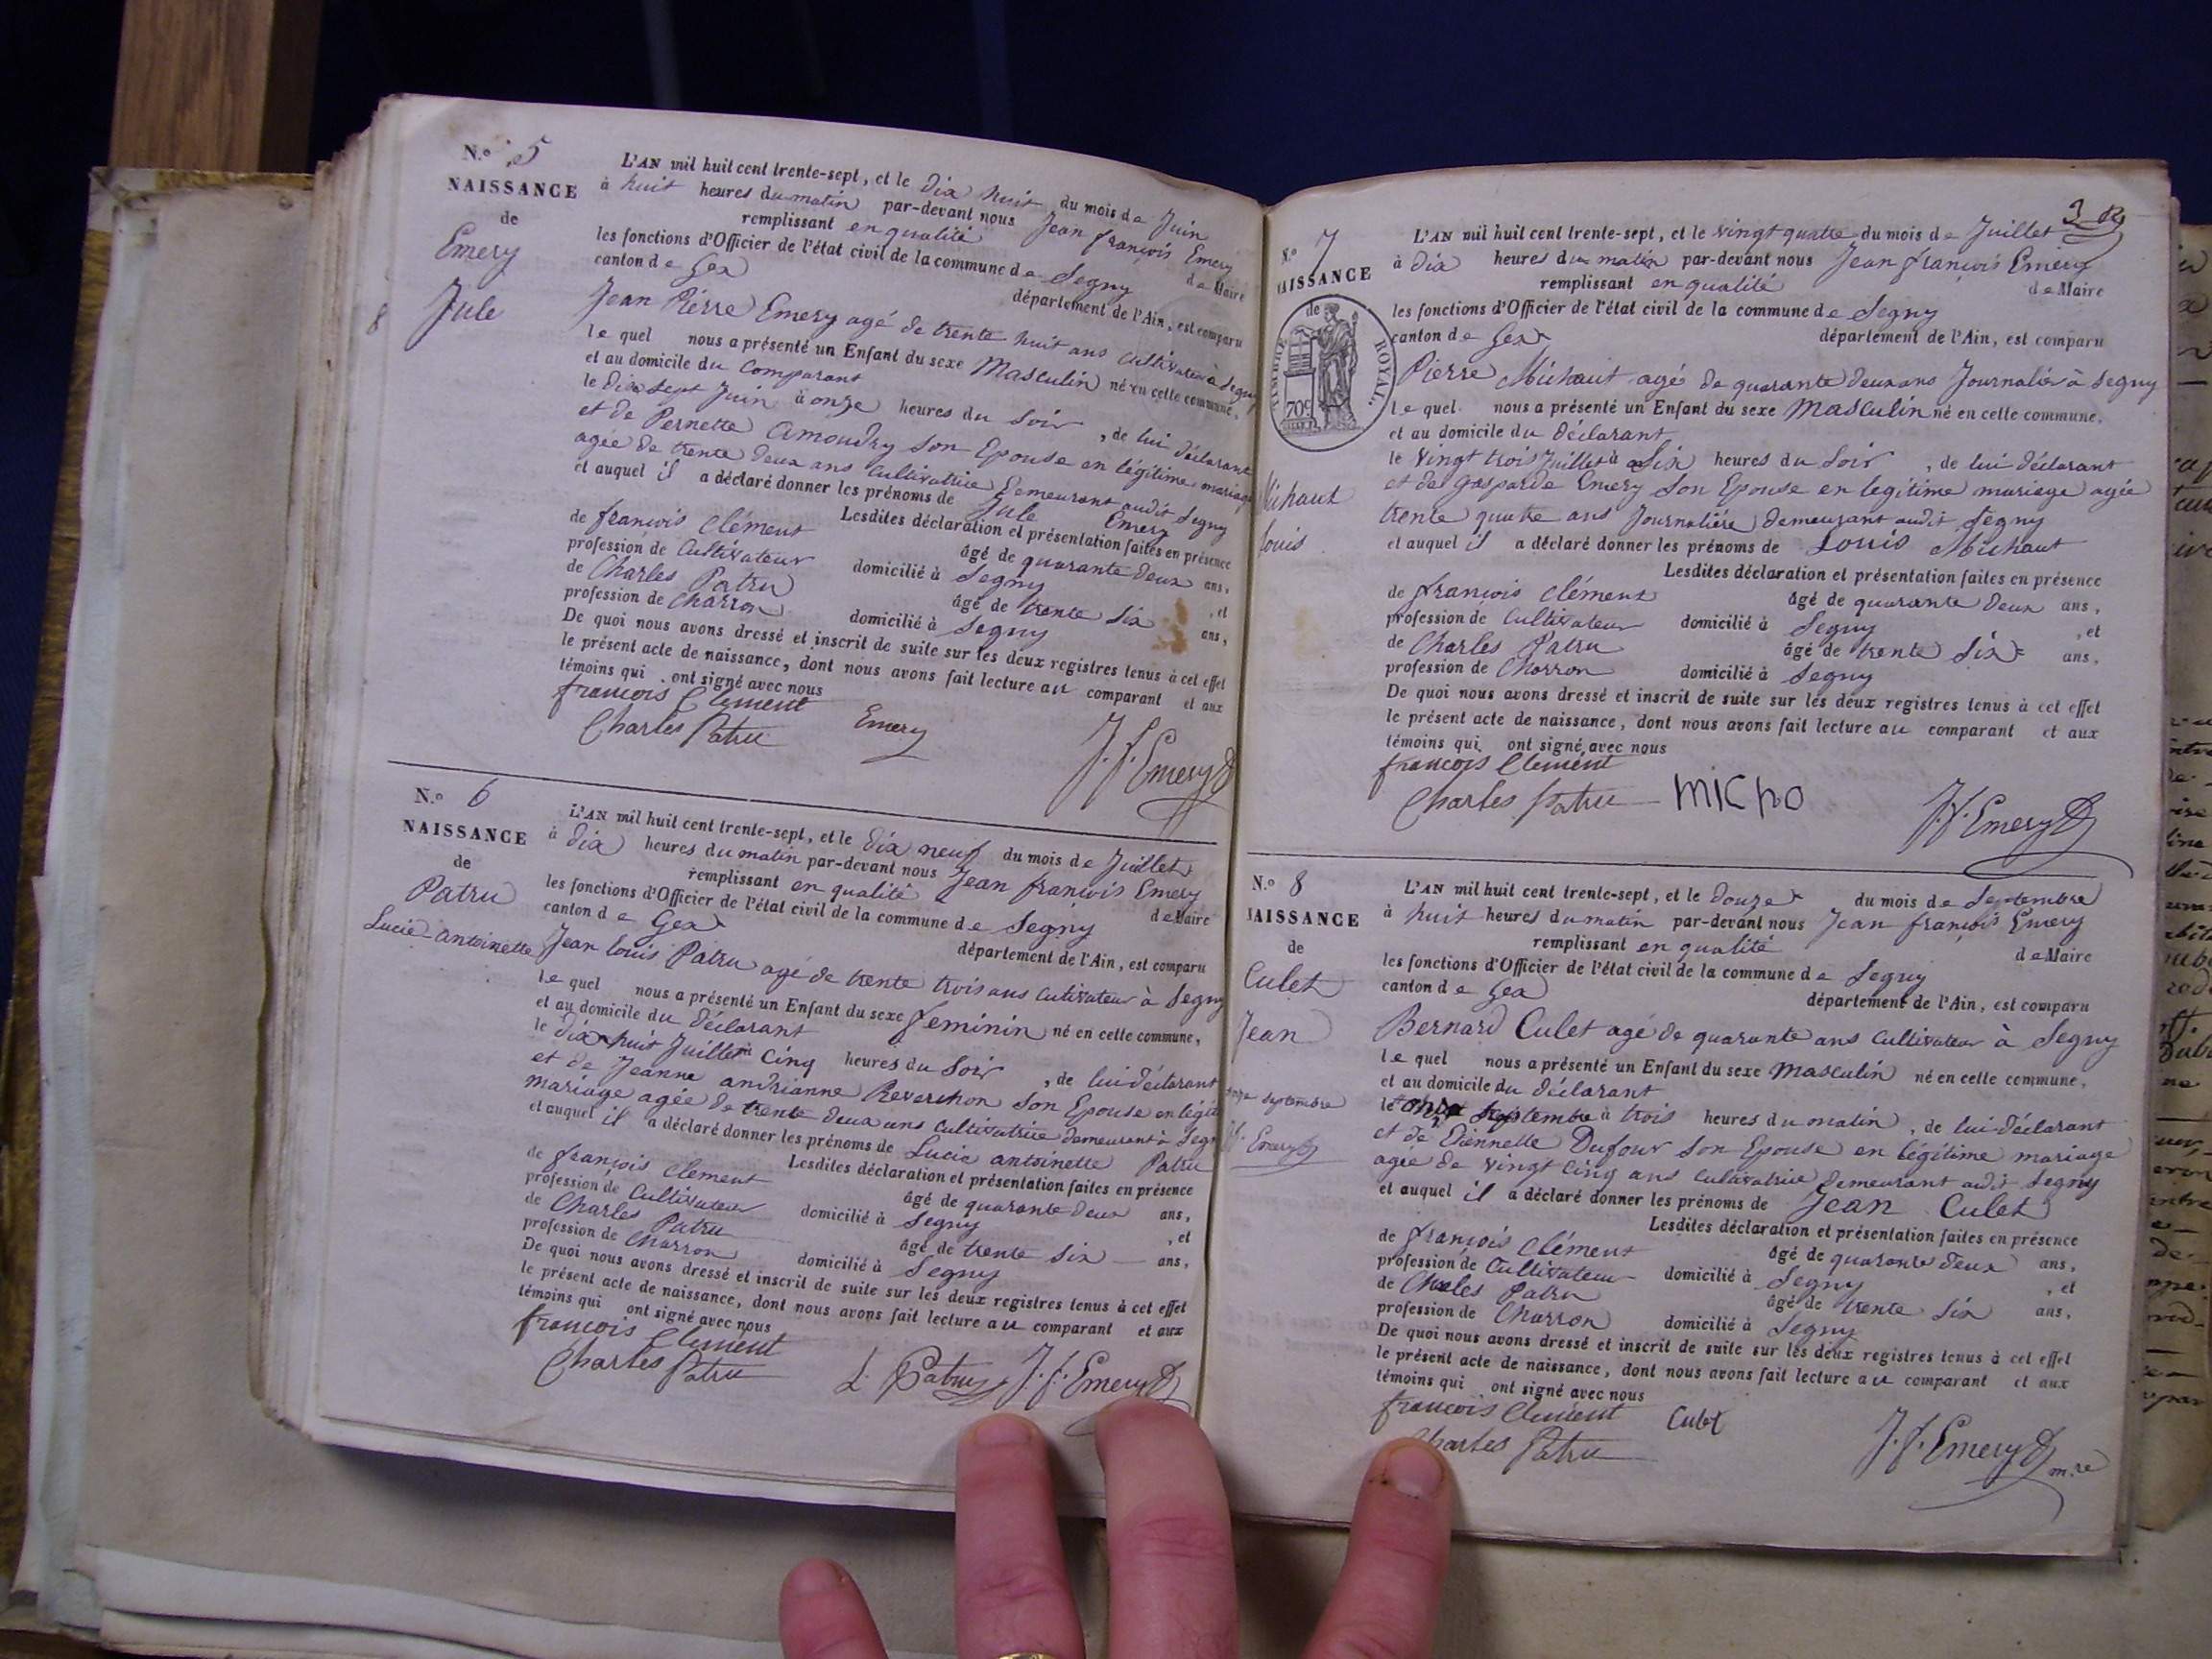 N.o 5
NAISSANCE
de
Emery
Jule
8
L'AN mil huit cent trente-sept, et le dix huit du mois de Juin
à huit heures du matin par-devant nous Jean françois Emery
remplissant en qualité de Maire
les fonctions d'Officier de l'état civil de la commune de Segny
canton de Gex département de l'Ain, est comparu
Jean Pierre Emery agé de trente huit ans cultivateur à Segny
le quel nous a présenté un Enfant du sexe Masculin né en cette commune,
et au domicile du comparant
le dix sept Juin à onze heures du Soir, de lui déclarant
et de Pernette Amoudry son Epouse en légitime mariage
agée de trente deux ans cultivatrice demeurant audit Segny
et auquel il a déclaré donner les prénoms de Jule Emery
Lesdites déclaration et présentation faites en présence
de françois Clément âgé de quarante deux ans,
profession de Cultivateur domicilié à Segny, et
de Charles Patru âgé de trente Six ans,
profession de Charron domicilié à Segny
De quoi nous avons dressé et inscrit de suite sur les deux registres tenus à cet effet
le présent acte de naissance, dont nous avons fait lecture au comparant et aux
témoins qui ont signé avec nous
françois Clement
Charles Patru Emery J. f. Emery
N.o 6
NAISSANCE
de
Patru
Lucie antoinette
L'AN mil huit cent trente-sept, et le dix neuf du mois de Juillet
à dix heures du matin par-devant nous Jean françois Emery
remplissant en qualité de Maire
les fonctions d'Officier de l'état civil de la commune de Segny
canton de Gex département de l'Ain, est comparu
Jean Louis Patru agé de trente trois ans cutivateur à Segny
le quel nous a présenté un Enfant du sexe feminin né en cette commune,
et au domicile du déclarant
le dix huit Juillet à Cinq heures du Soir, de lui déclarant
et de Jeanne andrianne Reverchon son Epouse en légit
mariage agée de trente deux ans cultivatrice demeurant à Segn
et auquel il a déclaré donner les prénoms de Lucie antoinette Patru
Lesdites déclaration et présentation faites en présence
de françois Clement âgé de quarante deux ans,
profession de Cultivateur domicilié à Segny, et
de Charles Patru âgé de trente Six ans,
profession de Charron domicilié à Segny
De quoi nous avons dressé et inscrit de suite sur les deux registres tenus à cet effet
le présent acte de naissance, dont nous avons fait lecture au comparant et aux
témoins qui ont signé avec nous
françois Clement
Charles Patru L. Patru J. f. Emery
3
N.o 7
AISSANCE
de
TIMBRE ROYAL.
70c
Michaut
Louis
L'AN mil huit cent trente-sept, et le vingt quatre du mois de Juillet
à dix heures du matin par-devant nous Jean françois Emery
remplissant en qualité de Maire
les fonctions d'Officier de l'état civil de la commune de Segny
canton de Gex département de l'Ain, est comparu
Pierre Michaut agé de quarante deux ans Journalier à Segny
le quel nous a présenté un Enfant du sexe Masculin né en cette commune.
et au domicile du déclarant
le vingt trois Juillet à Six heures du Soir, de lui déclarant
et de gasparde Emery Son Epouse en legitime mariage agée
trente quatre ans Journalière demeurant audit Segny
et auquel il a déclaré donner les prénoms de Louis Michaut
Lesdites déclaration et présentation faites en présence
de françois clément âgé de quarante deux ans,
profession de cultivateur domicilié à Segny, et
de Charles Patru âgé de trente Six ans,
profession de Charron domicilié à Segny
De quoi nous avons dressé et inscrit de suite sur les deux registres tenus à cet effet
le présent acte de naissance, dont nous avons fait lecture au comparant et aux
témoins qui ont signé avec nous
françois Clement
Charles Patru micho J. f. Emery
N.o 8
NAISSANCE
de
Culet
Jean
onze septembre
J. f. Emery
L'AN mil huit cent trente-sept, et le douze du mois de Septembre
à huit heures du matin par-devant nous Jean françois Emery
remplissant en qualité de Maire
les fonctions d'Officier de l'état civil de la commune de Segny
canton de Gex département de l'Ain, est comparu
Bernard Culet agé de quarante ans cultivateur à Segny
le quel nous a présenté un Enfant du sexe Masculin né en cette commune,
et au domicile du déclarant
le onze Septembre à trois heures du matin, de lui déclarant
et de Dufour Son Epouse en légitime mariage
agée de vingt cinq ans cultivatrice demeurant audit Segny
et auquel il a déclaré donner les prénoms de Jean Culet
Lesdites déclaration et présentation faites en présence
de françois Clément âgé de quarante deux ans,
profession de Cultivateur domicilié à Segny, et
de Charles Patru âgé de trente Six ans,
profession de Charron domicilié à Segny
De quoi nous avons dressé et inscrit de suite sur les deux registres tenus à cet effet
le présent acte de naissance, dont nous avons fait lecture au comparant et aux
témoins qui ont signé avec nous
françois Clement Culet
Charles Patru J. f. Emery m.re